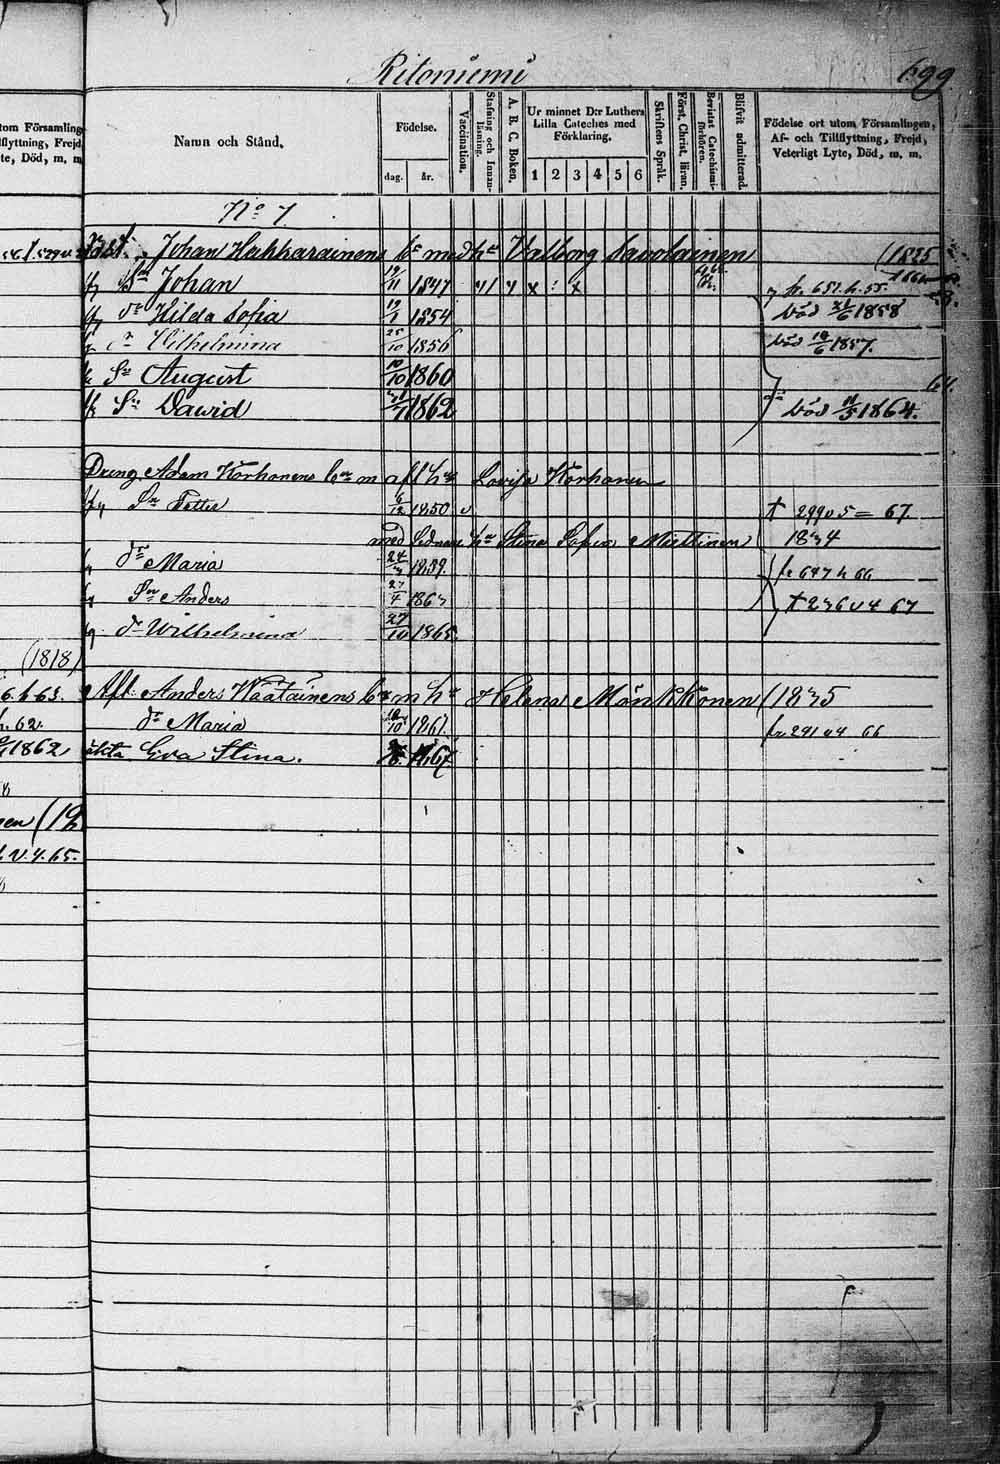 Ritoniemi 699
tom Församling
flyttning, Frejd
te, Död, m. m.
Namn och Stånd.
Födelse.
dag. år.
Vaccination.
Stafning och Innan-läsning.
A. B. C. Boken.
Ur minnet D:r Luthers Lilla Cateches med Förklaring.
1 2 3 4 5 6
Skriftens Språk.
Först. Christ. läran.
Bevistat Catechismi-förhören.
Blifvit admitterad.
Födelse ort utom Församlingen, Af- och Tillflyttning, Frejd, Veterligt Lyte, Död, m. m.
No 7
Johan Hakkarainens bn med hu Valborg Savolainen (1825
Sn Johan 19/11 1847 fr. 651. h. 55.
dr Hilda Sofia 19/1 1854 död 1858
dr Wilhelmina 25/10 1856 död 18/6 1857.
Sn August 10/10 1860 64.
Sn Dawid 1862 död 11/5 1864.
Dreng Adam Korhonens bn m afl hu Lovisa Korhonen
Sn Petter 6/12 1850 v † 299 v 5 = 67
med hu Stina Sofia Miettinen 1834
dr Maria 24/3 1859. fr 647 h 66
Sn Anders 27/4 1863 † 236 v 4 67
dr Wilhelmina 27/10 1865.
(1818)
6. h 63. Afl Anders Waatainens bn m hu Helena Mönkkönen (1835
h. 62. dr Maria 1861. fr 291 v 4 66
1862 äkta Eva Stina. 1867
nen (18
v. 4. 65.